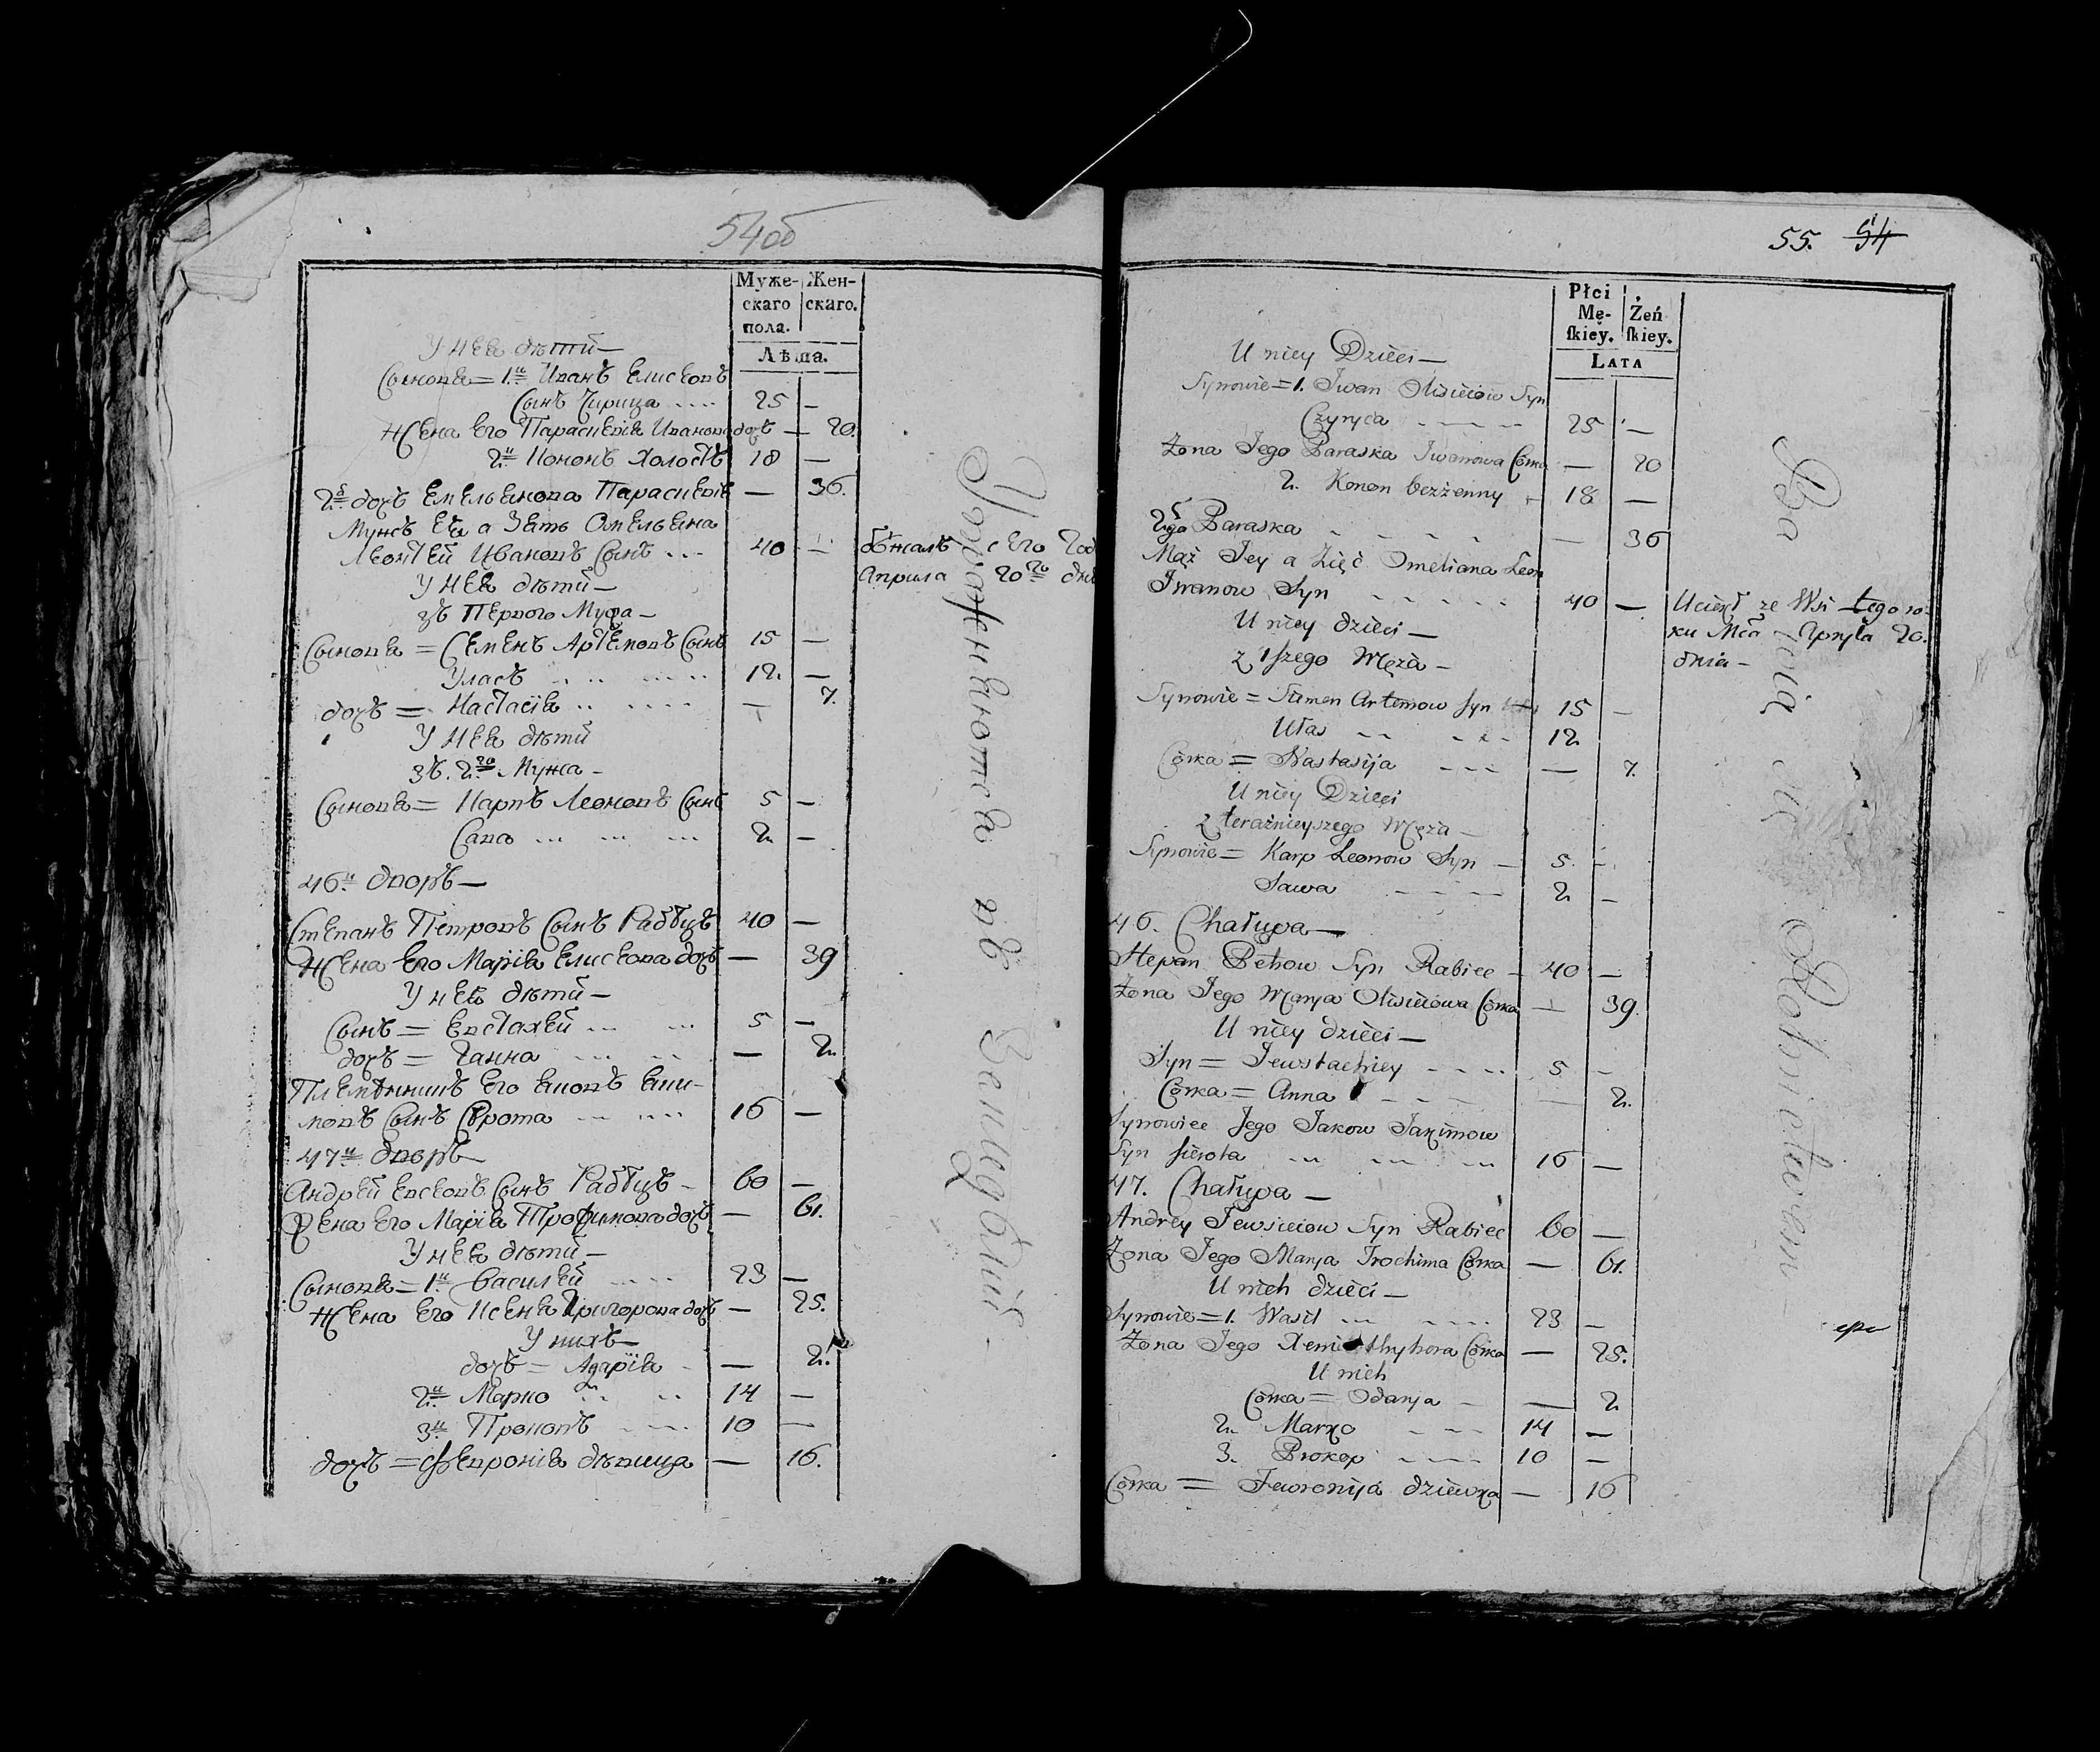 54об
Муже-
скаго
пола.
Жен-
скаго.
Лѣта.
У неѣ дѣти —
Сыновя = 1й Иванъ Елисеовъ
Сынъ Чирица .... 25 —
Жена Его Параскевія Иванова дочъ — 20.
2й Кононъ Холостъ 18 —
2я дочъ Емельянова Параскевія — 36.
Мужъ Еѣ а Зять Омельяна
Леонтей Ивановъ Сынъ ... 40 —
бѣжалъ сего Год
Априля 20го дня
У неѣ дѣти —
зъ Первого Мужа —
Сыновя = Семенъ Артемовъ Сынъ 15 —
Уласъ .. .. ... .. 12. —
дочъ = Настасія .. .... — 7.
У неѣ дѣти
зъ 2го Мужа —
Сыновя = Карпъ Леоновъ Сынъ 5 —
Савва ... ... ... 2 —
46й дворъ —
Степанъ Петровъ Сынъ Рабѣцъ 40 —
Жена Его Марія Елисеова дочъ — 39
У неѣ дѣти —
Сынъ = Евстахей ... ... 5 —
дочъ = Ганна ... .. — 2.
Племѣнникъ Его Яковъ Яки-
мовъ Сынъ Сирота ... ... 16 —
47й дворъ —
Андрей Евсеовъ Сынъ Рабѣцъ — 60 —
Жена Его Марія Трофимова дочъ — 61.
У неѣ дѣти —
Сыновя = 1й Василей .... 23 —
Жена Его Ксенія Григорова дочъ — 25.
У нихъ —
дочъ = Адарія — — 2.
2й Марко .. .. 14 —
3й Прокопъ .... 10 —
дочъ = Февронія дѣвица — 16.
55. 54
Płci
Mę-
ſkiey.
Żeń
ſkiey.
Lata
U niey Dzieci —
Synowie = 1. Iwan Olisieiow Syn
Czyryca ..... 25 —
Żona Jego Paraska Iwanowa Córka — 20
2. Konon bezżenny 18 —
2ga Paraska — 36
Mąż Jey a Zięć Omeliana Leon
Iwanow Syn ..... 40 —
Uciekł ze Wsi tego ro-
ku Mca Apryla 20.
dnia —
U niey dzieci —
z 1szego Męża —
Synowie = Simen Artemow syn 15 —
Ułas .. ... 12
Córka = Nastasija ... — 7.
U niey Dzieci
z teraźnieyszego Męża —
Synowie = Karp Leonow Syn — 5. —
Sawa .... 2 —
46. Chałupa —
Stepan Petrow Syn Rabiec — 40 —
Żona Jego Marya Olisieiowa Córka — 39.
U niey dzieci —
Syn = Jewstachiey .... 5 —
Córka = Anna ... — 2.
Synowiec Jego Jakow Jakimow
Syn sierota ... ... ... 16 —
47. Chałupa —
Andrey Jewsieiow Syn Rabiec 60 —
Żona Jego Marya Trochima Córka — 61.
U nich dzieci —
Synowie = 1. Wasil ... .... 23 —
Żona Jego Xenia Hryhora Córka — 25.
U nich
Córka = Odarya — — 2
2. Marko ... 14 —
3. Prokop .... 10 —
Córka = Jewronija dziewka — 16